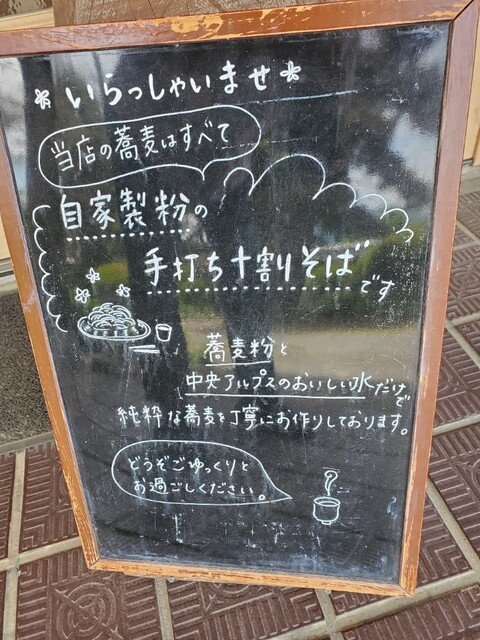 いらっしゃいませ
当店の蕎麦はすべて
自家製粉の
手打ち十割そばです
蕎麦粉と
中央アルプスのおいしい水だけで
純粋な蕎麦を丁寧にお作りしております。
どうぞごゆっくりと
お過ごしください。